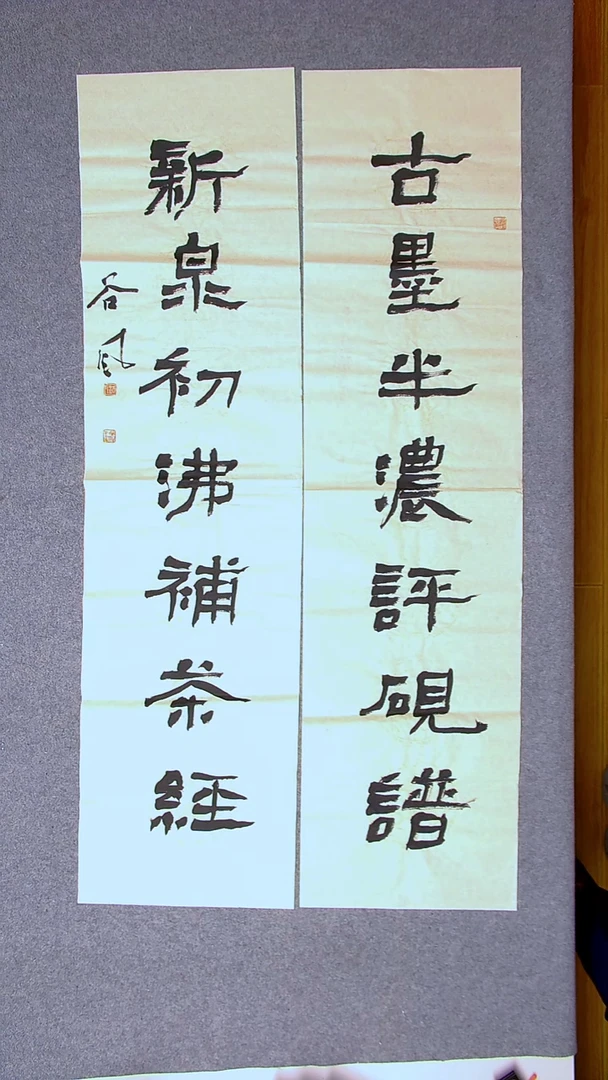 古墨半濃評硯譜
新泉初沸補茶經
谷風